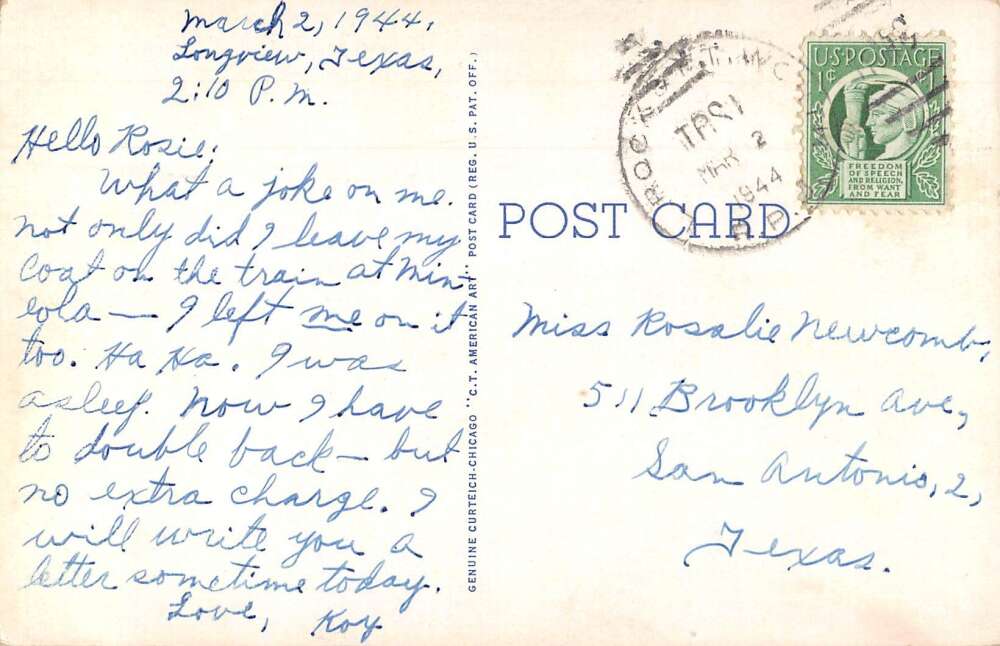 March 2, 1944,
Longview, Texas,
2:10 P.M.
Hello Rosie:
What a joke on me.
not only did I leave my
coat on the train at Min-
eola — I left me on it
too. Ha Ha. I was
asleep. Now I have
to double back — but
no extra charge. I
will write you a
letter sometime today.
Love, Koy
GENUINE CURTEICH-CHICAGO "C.T. AMERICAN ART" POST CARD (REG. U.S. PAT. OFF.)
POST CARD
TR 51
MAR 2
1944
U.S. POSTAGE
1¢
FREEDOM
OF SPEECH
AND RELIGION,
FROM WANT
AND FEAR
Miss Rosalie Newcomb,
511 Brooklyn Ave,
San Antonio, 2,
Texas.